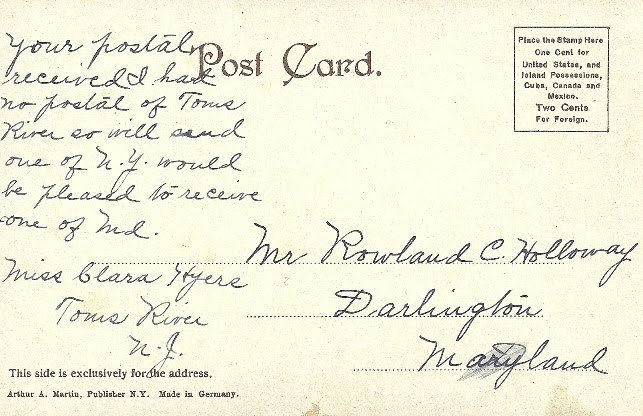 Post Card.
Place the Stamp Here
One Cent for
United States, and
Island Possessions,
Cuba, Canada and
Mexico.
Two Cents
For Foreign.
Your postal
received I had
no postal of Toms
River so will send
one of N.Y. would
be pleased to receive
one of Md.
Miss Clara Hyers
Toms River
N.J.
Mr Rowland C. Holloway
Darlington
Maryland
This side is exclusively for the address.
Arthur A. Martin, Publisher N.Y. Made in Germany.